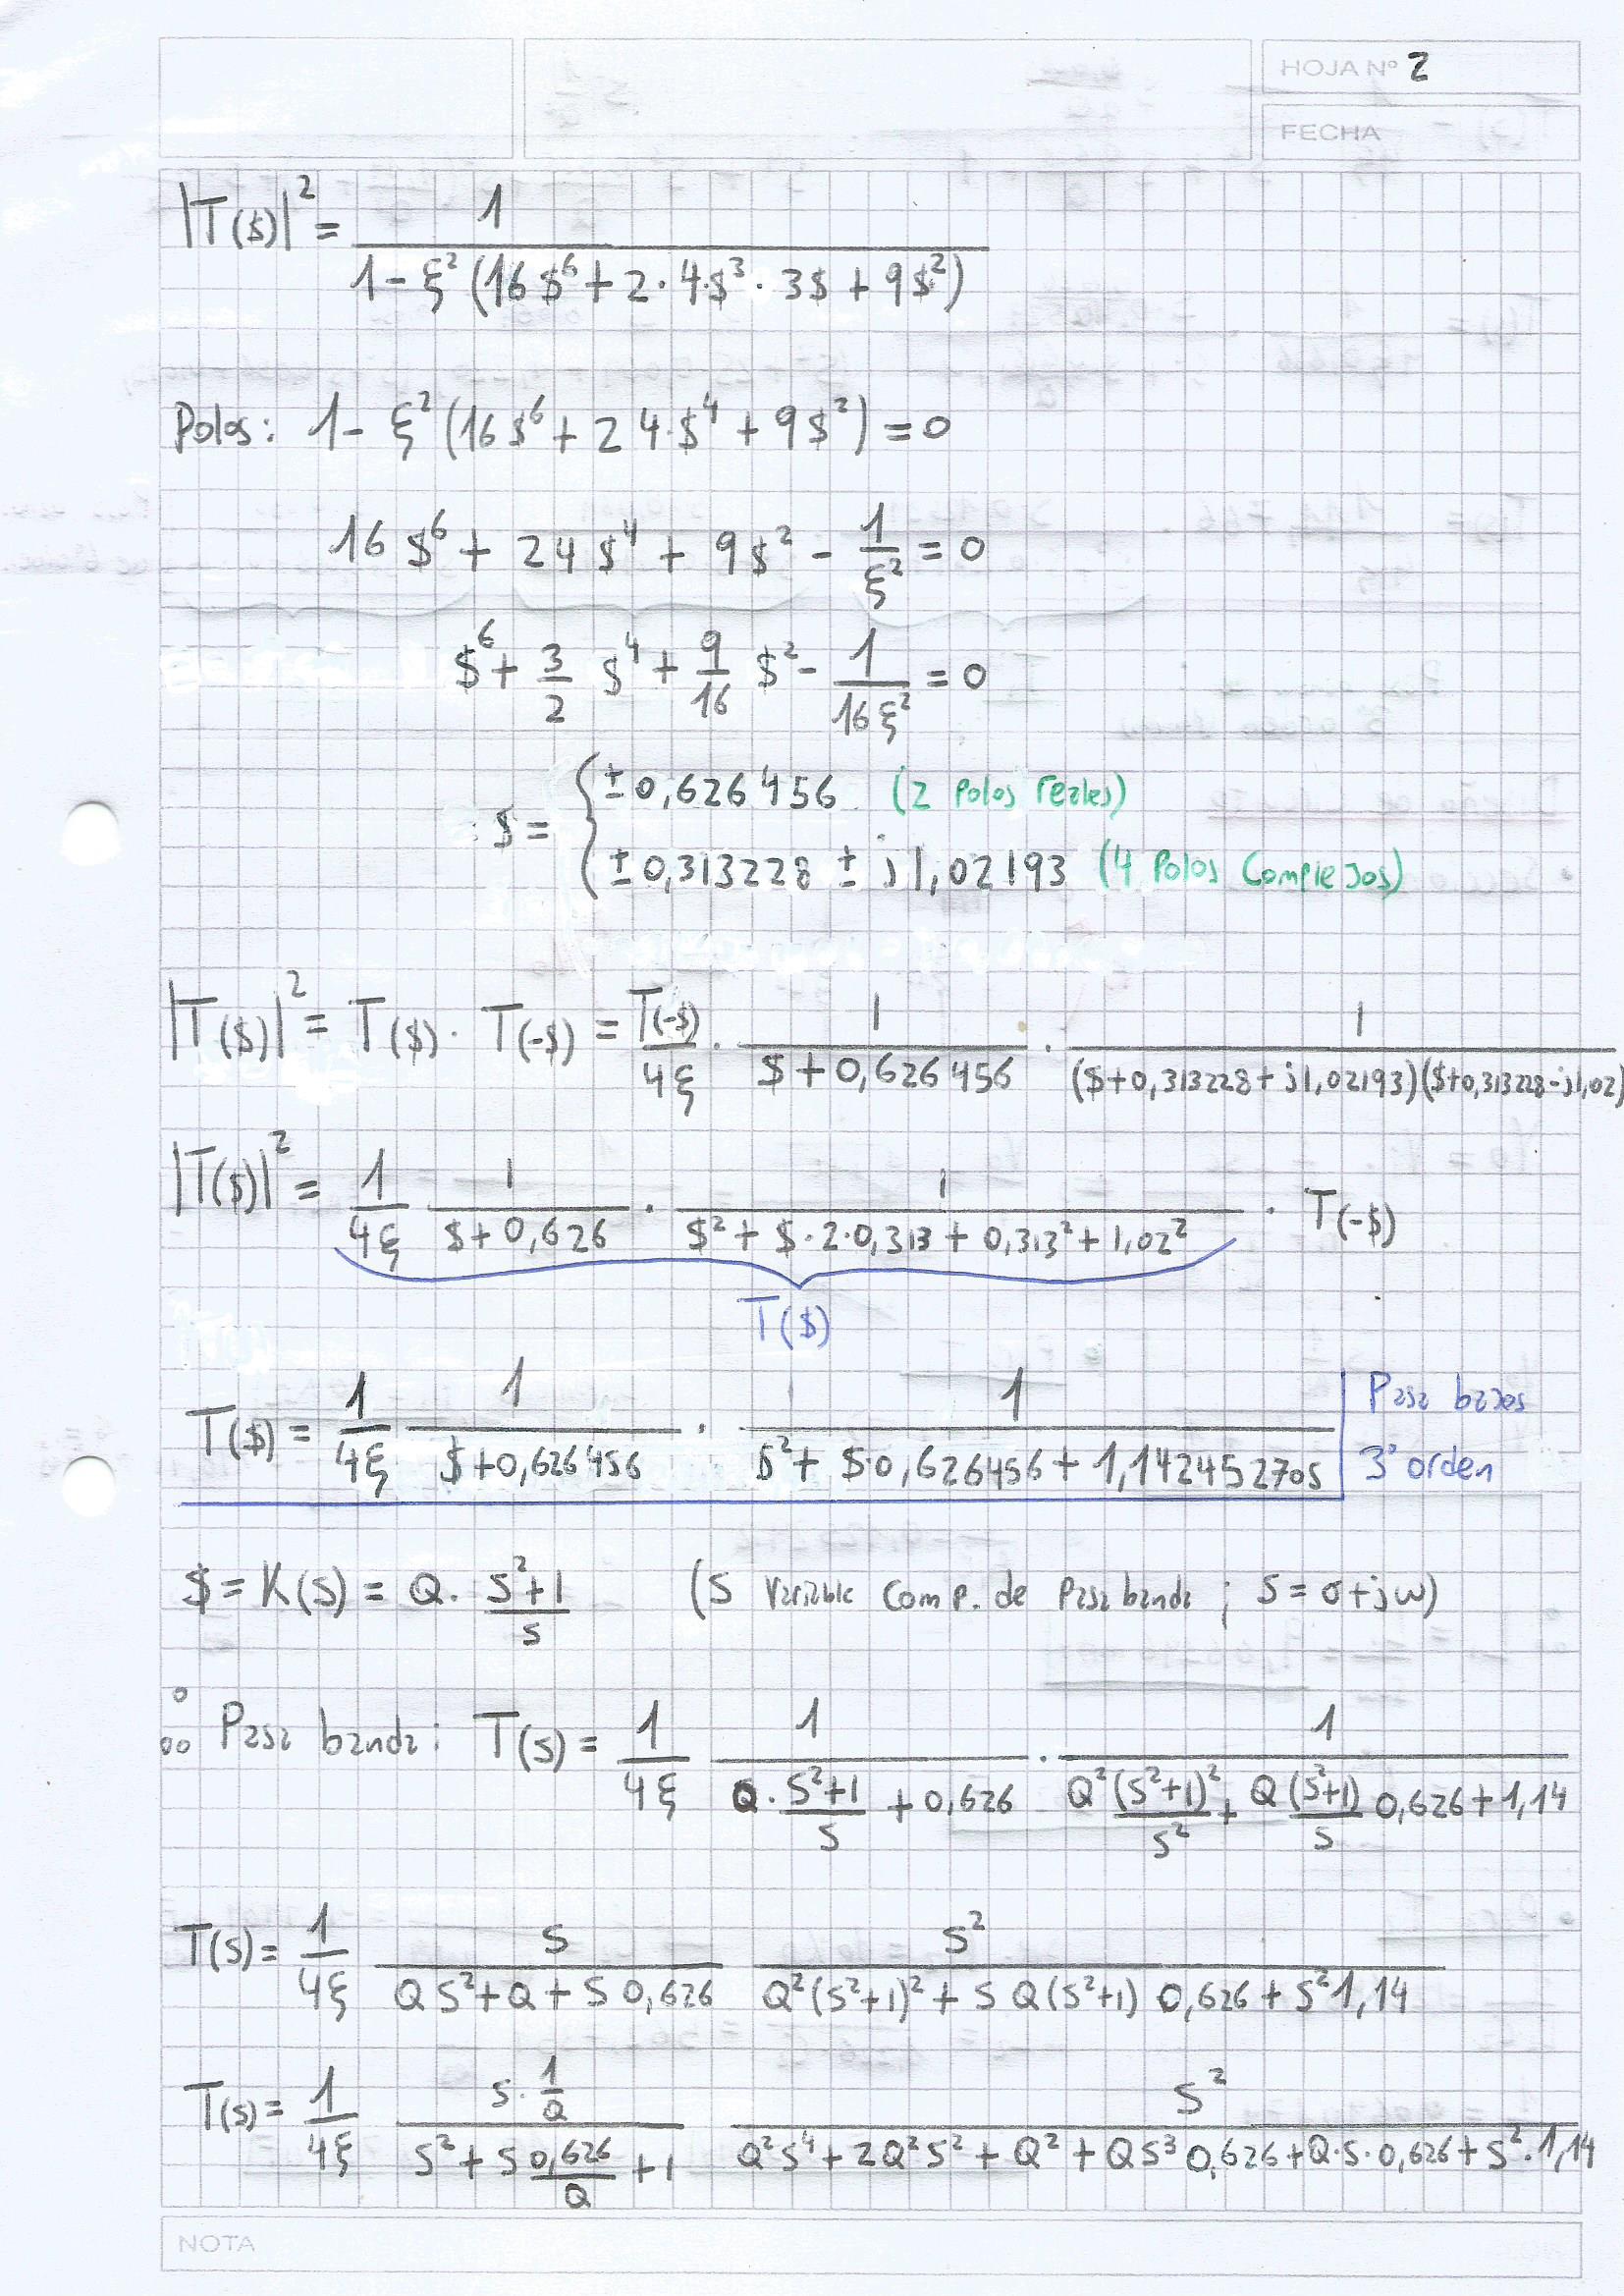 HOJA Nº 2
FECHA
|T($)|² = 1 / (1 - ξ² (16$⁶ + 2·4$³·3$ + 9$²))
Polos: 1 - ξ² (16$⁶ + 24$⁴ + 9$²) = 0
16$⁶ + 24$⁴ + 9$² - 1/ξ² = 0
$⁶ + 3/2 $⁴ + 9/16 $² - 1/(16ξ²) = 0
$ = { ±0,626456 (2 Polos reales)
±0,313228 ± j1,02193 (4 Polos Complejos)
|T($)|² = T($) · T(-$) = T(-$)/(4ξ) · 1/($+0,626456) · 1/(($+0,313228+j1,02193)($+0,313228-j1,02))
|T($)|² = 1/(4ξ) 1/($+0,626) · 1/($² + $·2·0,313 + 0,313² + 1,02²) · T(-$)
T($)
T($) = 1/(4ξ) 1/($+0,626456) · 1/($² + $·0,626456 + 1,142452705) Pasa bajos 3º orden
$ = K(s) = Q · (s²+1)/s (s variable comp. de pasabanda ; s = σ+jω)
∴ Pasa banda: T(s) = 1/(4ξ) 1/(Q·(s²+1)/s + 0,626) · 1/(Q²(s²+1)²/s² + Q(s²+1)/s 0,626 + 1,14)
T(s) = 1/(4ξ) s/(Qs²+Q+s 0,626) s²/(Q²(s²+1)² + s Q(s²+1) 0,626 + s² 1,14)
T(s) = 1/(4ξ) (s·1/Q)/(s² + s 0,626/Q + 1) s²/(Q²s⁴ + 2Q²s² + Q² + Qs³ 0,626 + Q·s·0,626 + s²·1,14)
NOTA